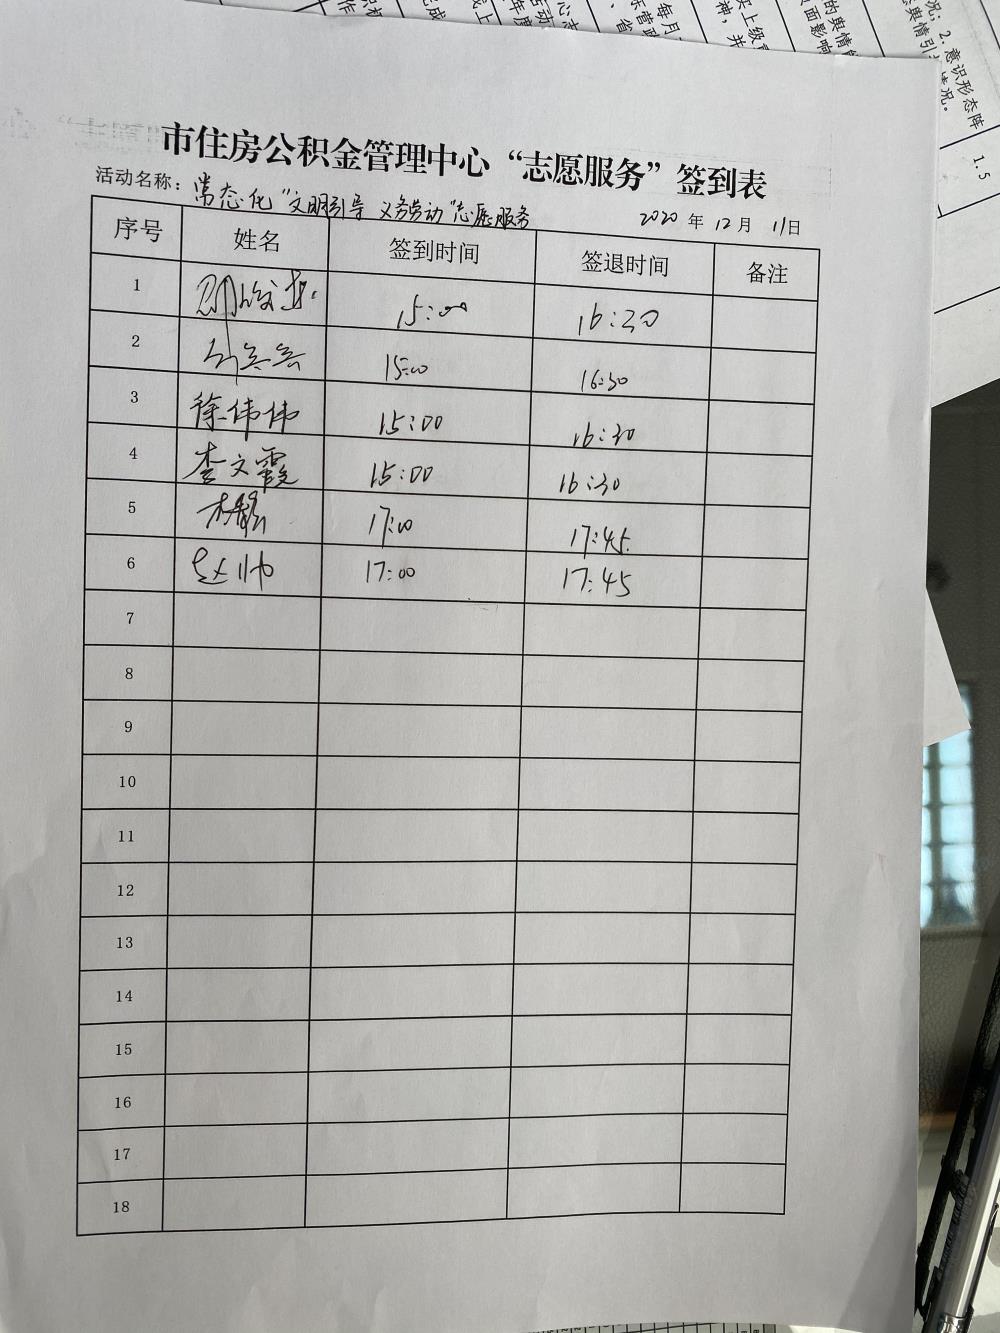 市住房公积金管理中心“志愿服务”签到表
活动名称：常态化“文明引导 义务劳动”志愿服务 2020年12月11日
序号 姓名 签到时间 签退时间 备注
1 15:00 16:30
2 15:00 16:30
3 徐伟伟 15:00 16:30
4 李文霞 15:00 16:30
5 17:00 17:45
6 赵帅 17:00 17:45
7
8
9
10
11
12
13
14
15
16
17
18
况；2.意识形态阵
1.5